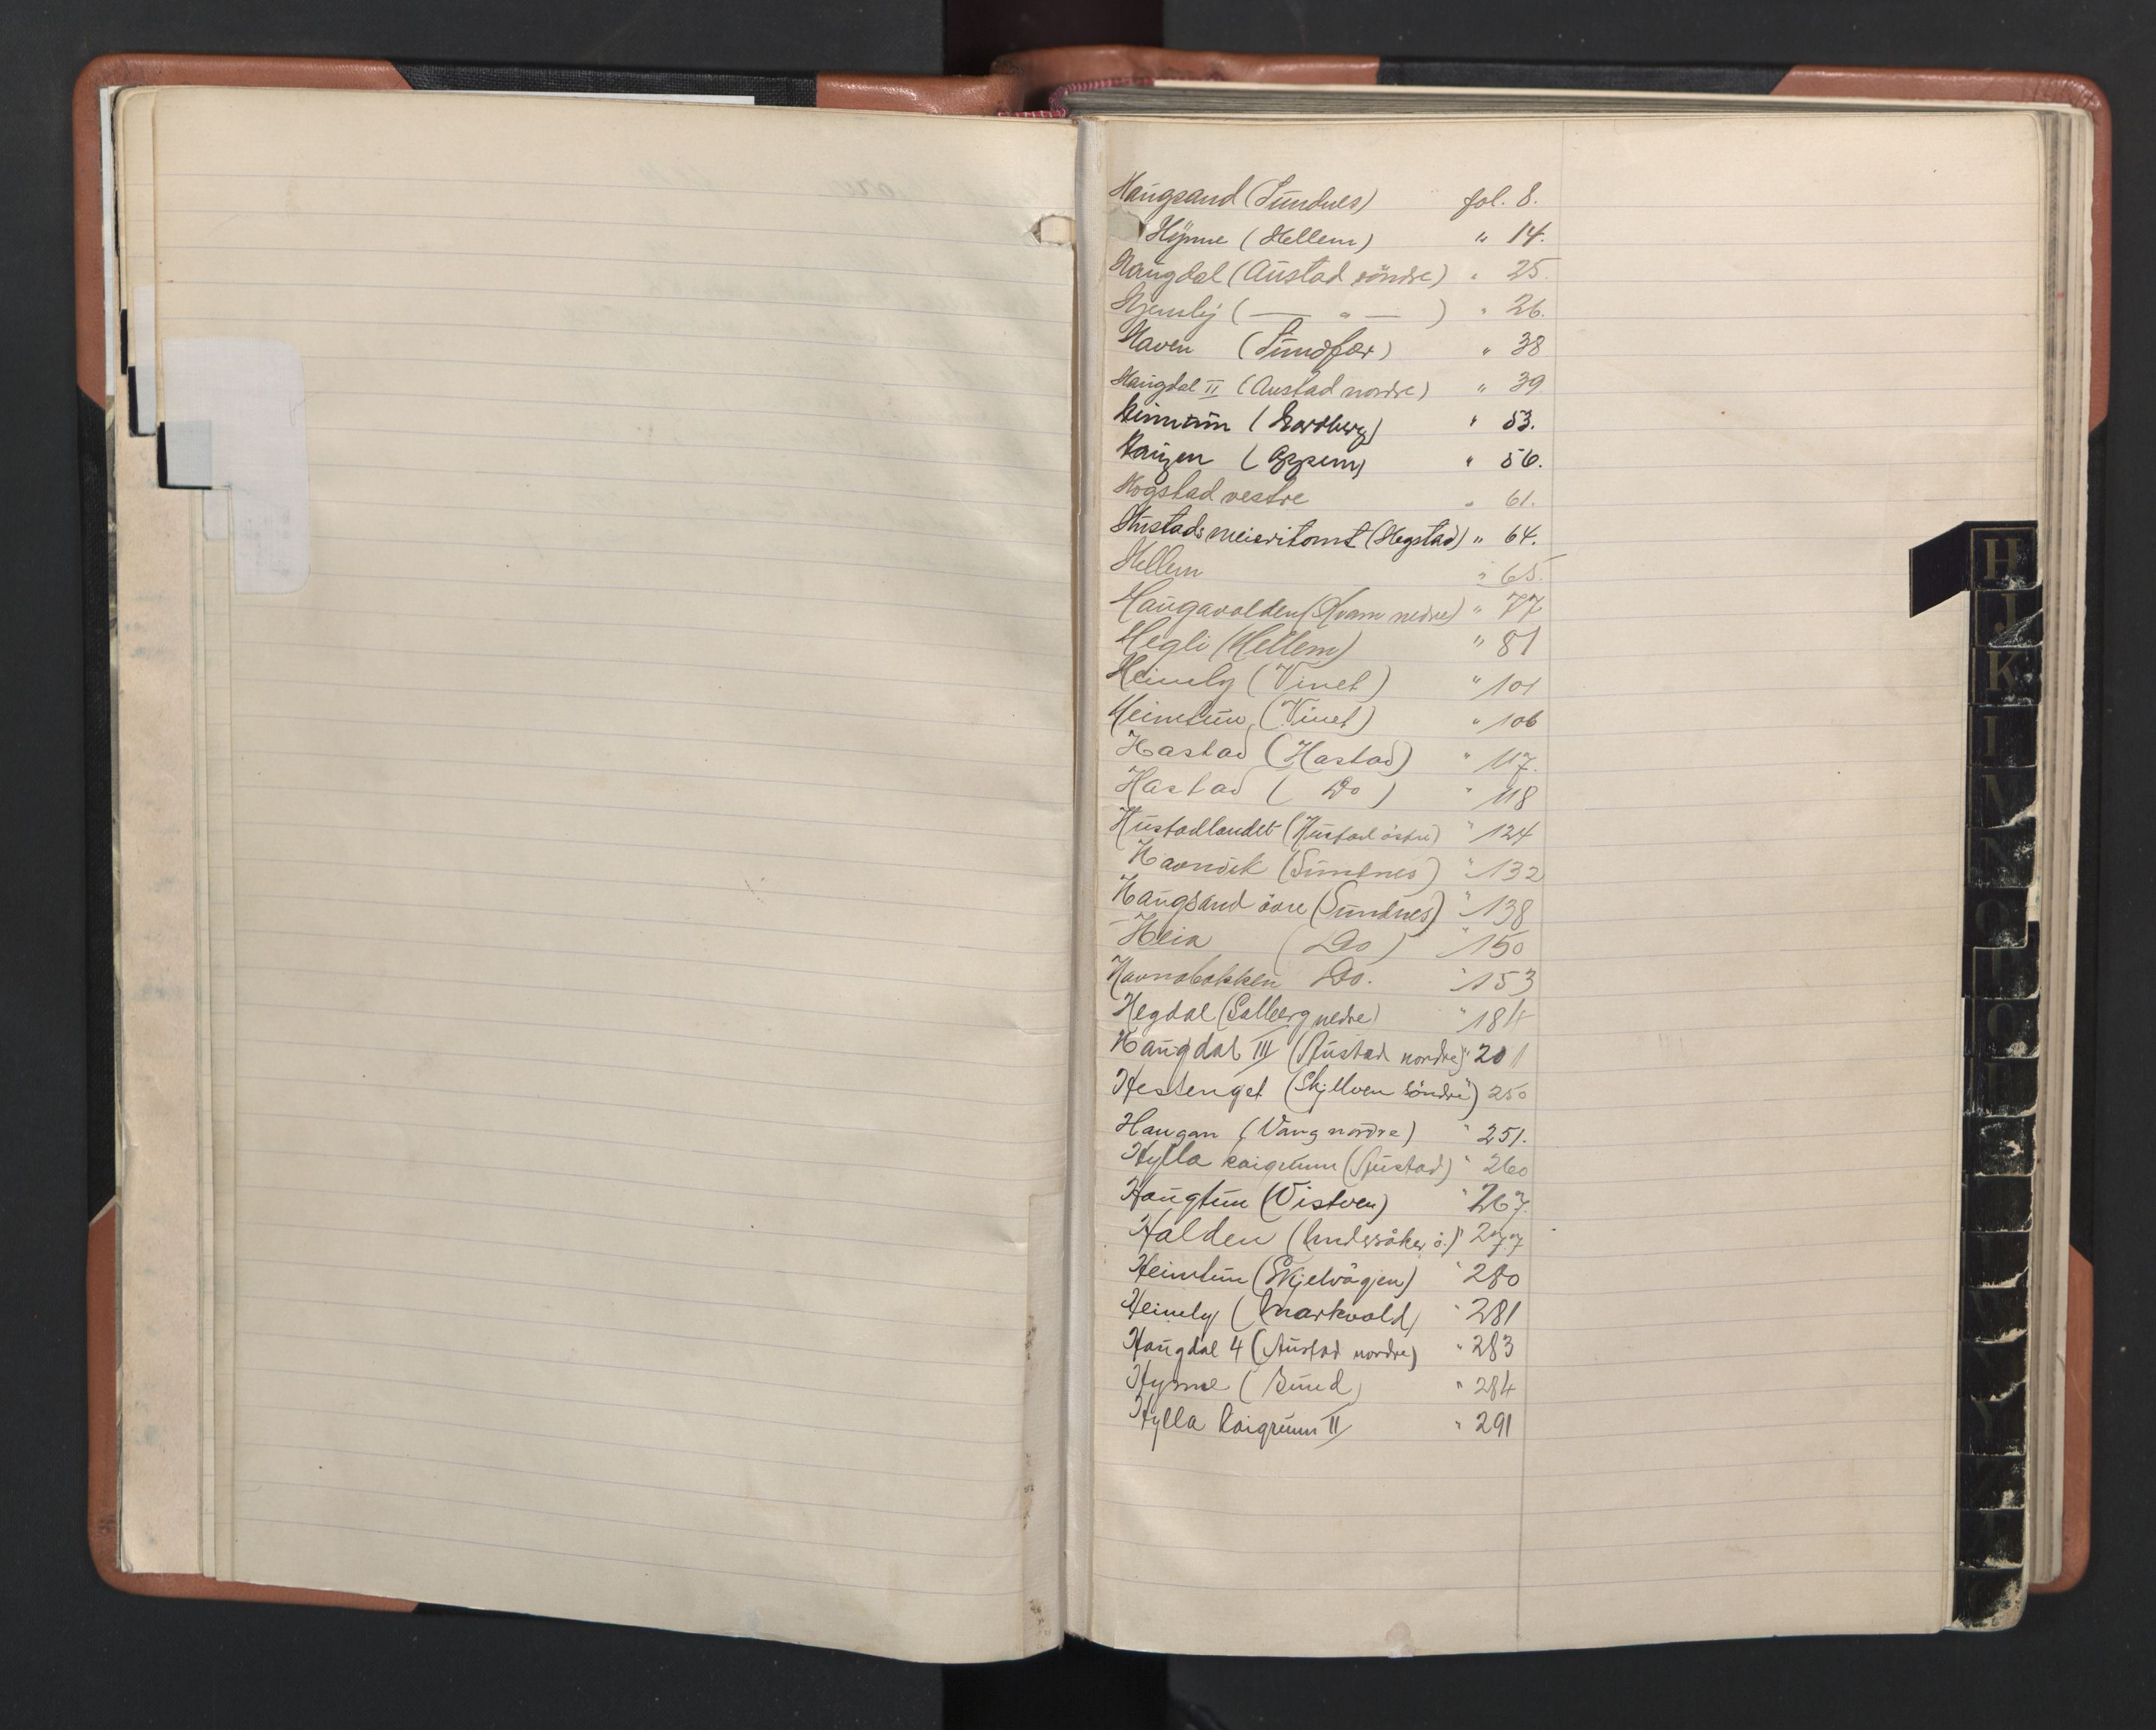 Haugsand (Sundnes) fol. 8.
Hynne (Hellem) " 14.
Haugdal (Austad söndre) " 25.
Hjemly ( — " — ) " 26.
Haven (Sundfær) " 38
Haugdal II (Austad nordre) " 39
Heimtun (Gardberg) " 53.
Haugen (Oppem) " 56.
Hogstad vestre " 61.
Hustads meieritomt (Hegstad) " 64.
Hellem " 65.
Haugavolden (Kvam nedre) " 77
Hegli (Hellem) " 81
Heimly (Vinet) " 101
Heimtun (Vinet) " 106
Hastad (Hastad) " 117.
Hastad ( Do ) " 118
Hustadlandet (Hustad östre) " 124
Havnvik (Sundnes) " 132
Haugsand övre (Sundnes) " 138
Heia ( Do ) " 150
Havnabakken Do. " 153
Hegdal (Salberg nedre) " 184
Haugdal III (Austad nordre) " 201
Hestenget (Skjelven söndre) " 250
Haugan (Vang nordre) " 251.
Hylla kaigrunn (Austad) " 260
Haugtun (Vistven) " 267.
Halden (Undersåker ö.) " 277
Heimtun (Skjelvågen) " 280
Heimly (Markvold) " 281
Haugdal 4 (Austad nordre) " 283
Hynne (Sund) " 284
Hylla kaigrunn II " 291
H
J
K